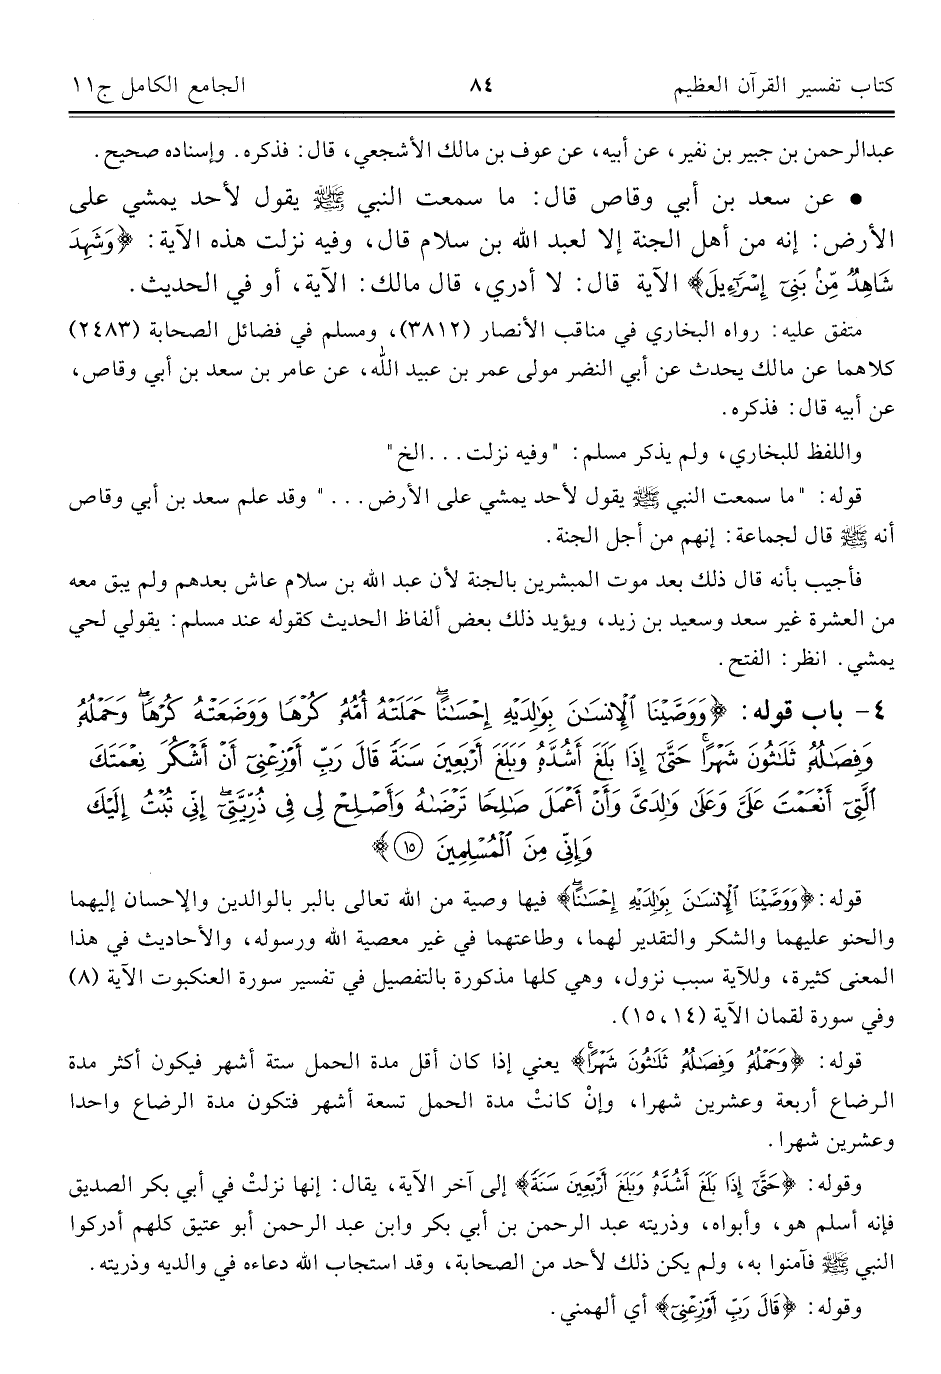 كتاب تفسير القرآن العظيم ٨٤ الجامع الكامل ج١١
عبدالرحمن بن جبير بن نفير، عن أبيه، عن عوف بن مالك الأشجعي، قال: فذكره. وإسناده صحيح.
• عن سعد بن أبي وقاص قال: ما سمعت النبي ﷺ يقول لأحد يمشي على
الأرض: إنه من أهل الجنة إلا لعبد الله بن سلام قال، وفيه نزلت هذه الآية: ﴿وَشَهِدَ
شَاهِدٌ مِّنۢ بَنِىٓ إِسْرَٰٓءِيلَ﴾ الآية قال: لا أدري، قال مالك: الآية، أو في الحديث.
متفق عليه: رواه البخاري في مناقب الأنصار (٣٨١٢)، ومسلم في فضائل الصحابة (٢٤٨٣)
كلاهما عن مالك يحدث عن أبي النضر مولى عمر بن عبيد الله، عن عامر بن سعد بن أبي وقاص،
عن أبيه قال: فذكره.
واللفظ للبخاري، ولم يذكر مسلم: "وفيه نزلت...الخ"
قوله: "ما سمعت النبي ﷺ يقول لأحد يمشي على الأرض..." وقد علم سعد بن أبي وقاص
أنه ﷺ قال لجماعة: إنهم من أجل الجنة.
فأجيب بأنه قال ذلك بعد موت المبشرين بالجنة لأن عبد الله بن سلام عاش بعدهم ولم يبق معه
من العشرة غير سعد وسعيد بن زيد، ويؤيد ذلك بعض ألفاظ الحديث كقوله عند مسلم: يقولي لحي
يمشي. انظر: الفتح.
٤- باب قوله: ﴿وَوَصَّيْنَا ٱلْإِنسَٰنَ بِوَٰلِدَيْهِ إِحْسَٰنًا ۖ حَمَلَتْهُ أُمُّهُۥ كُرْهًا وَوَضَعَتْهُ كُرْهًا ۖ وَحَمْلُهُۥ
وَفِصَٰلُهُۥ ثَلَٰثُونَ شَهْرًا ۚ حَتَّىٰٓ إِذَا بَلَغَ أَشُدَّهُۥ وَبَلَغَ أَرْبَعِينَ سَنَةً قَالَ رَبِّ أَوْزِعْنِىٓ أَنْ أَشْكُرَ نِعْمَتَكَ
ٱلَّتِىٓ أَنْعَمْتَ عَلَىَّ وَعَلَىٰ وَٰلِدَىَّ وَأَنْ أَعْمَلَ صَٰلِحًا تَرْضَىٰهُ وَأَصْلِحْ لِى فِى ذُرِّيَّتِىٓ ۖ إِنِّى تُبْتُ إِلَيْكَ
وَإِنِّى مِنَ ٱلْمُسْلِمِينَ ١٥﴾
قوله: ﴿وَوَصَّيْنَا ٱلْإِنسَٰنَ بِوَٰلِدَيْهِ إِحْسَٰنًا ۖ﴾ فيها وصية من الله تعالى بالبر بالوالدين والإحسان إليهما
والحنو عليهما والشكر والتقدير لهما، وطاعتهما في غير معصية الله ورسوله، والأحاديث في هذا
المعنى كثيرة، وللآية سبب نزول، وهي كلها مذكورة بالتفصيل في تفسير سورة العنكبوت الآية (٨)
وفي سورة لقمان الآية (١٤،١٥).
قوله: ﴿وَحَمْلُهُۥ وَفِصَٰلُهُۥ ثَلَٰثُونَ شَهْرًا ۚ﴾ يعني إذا كان أقل مدة الحمل ستة أشهر فيكون أكثر مدة
الرضاع أربعة وعشرين شهرا، وإنْ كانتْ مدة الحمل تسعة أشهر فتكون مدة الرضاع واحدا
وعشرين شهرا.
وقوله: ﴿حَتَّىٰٓ إِذَا بَلَغَ أَشُدَّهُۥ وَبَلَغَ أَرْبَعِينَ سَنَةً﴾ إلى آخر الآية، يقال: إنها نزلتْ في أبي بكر الصديق
فإنه أسلم هو، وأبواه، وذريته عبد الرحمن بن أبي بكر وابن عبد الرحمن أبو عتيق كلهم أدركوا
النبي ﷺ فآمنوا به، ولم يكن ذلك لأحد من الصحابة، وقد استجاب الله دعاءه في والديه وذريته.
وقوله: ﴿قَالَ رَبِّ أَوْزِعْنِىٓ﴾ أي ألهمني.